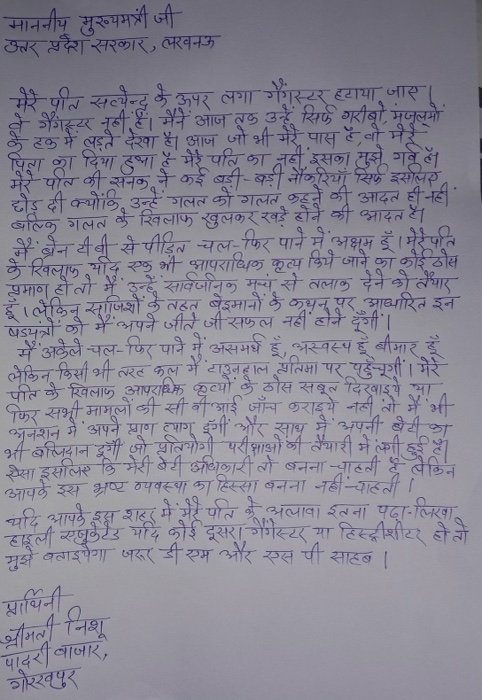 माननीय मुख्यमत्री जी
उत्तर प्रदेश सरकार, लखनऊ
मेरे पति सत्येन्द्र के ऊपर लगा गैंगस्टर हटाया जाए।
वे गैंगस्टर नहीं हैं। मैंने आज तक उन्हें सिर्फ गरीबों, मजलूमों
के हक में लड़ते देखा है। आज जो भी मेरे पास है, वो मेरे
पिता का दिया हुआ है मेरे पति का नहीं इसका मुझे गर्व है।
मेरे पति की सनक ने कई बड़ी-बड़ी नौकरियाँ सिर्फ इसलिए
छोड़ दी क्योंकि उन्हें गलत को गलत कहने की आदत ही नहीं
बल्कि गलत के खिलाफ खुलकर खड़े होने की आदत है।
मैं ब्रेन टी.वी से पीड़ित चल-फिर पाने में अक्षम हूँ। मेरे पति
के खिलाफ यदि एक भी आपराधिक कृत्य किये जाने का कोई ठोस
प्रमाण हो तो मैं उन्हें सार्वजनिक मन्च से तलाक देने को तैयार
हूँ। लेकिन साजिशों के तहत बेइमानों के कथन पर आधारित इन
षडयंत्रों को मैं अपने जीते जी सफल नहीं होने दूँगी।
मैं अकेले चल-फिर पाने में असमर्थ हूँ, अस्वस्थ हूँ बीमार हूँ
लेकिन किसी भी तरह कल मैं टाउनहाल प्रतिमा पर पहुँचूगीं। मेरे
पति के खिलाफ आपराधिक कृत्यों के ठोस सबूत दिखाइये या
फिर सभी मामलों की सी बी आई जाँच कराइये नहीं तो मैं भी
अनशन में अपने प्राण त्याग दूँगी और साथ में अपनी बेटी का
भी बलिदान दूँगी जो प्रतियोगी परीक्षाओं की तैयारी में लगी हुई है।
ऐसा इसलिए कि मेरी बेटी अधिकारी तो बनना चाहती है लेकिन
आपके इस भ्रष्ट व्यवस्था का हिस्सा बनना नहीं चाहती।
यदि आपके इस शहर में मेरे पति के अलावा इतना पढ़ा-लिखा
हाइली एजुकेटेड यदि कोई दूसरा गैंगेस्टर या हिस्ट्रीशीटर हो तो
मुझे बताइयेगा जरूर डी एम और एस पी साहब।
प्रार्थिनी
श्रीमती निशू
पादरी बाजार,
गोरखपुर